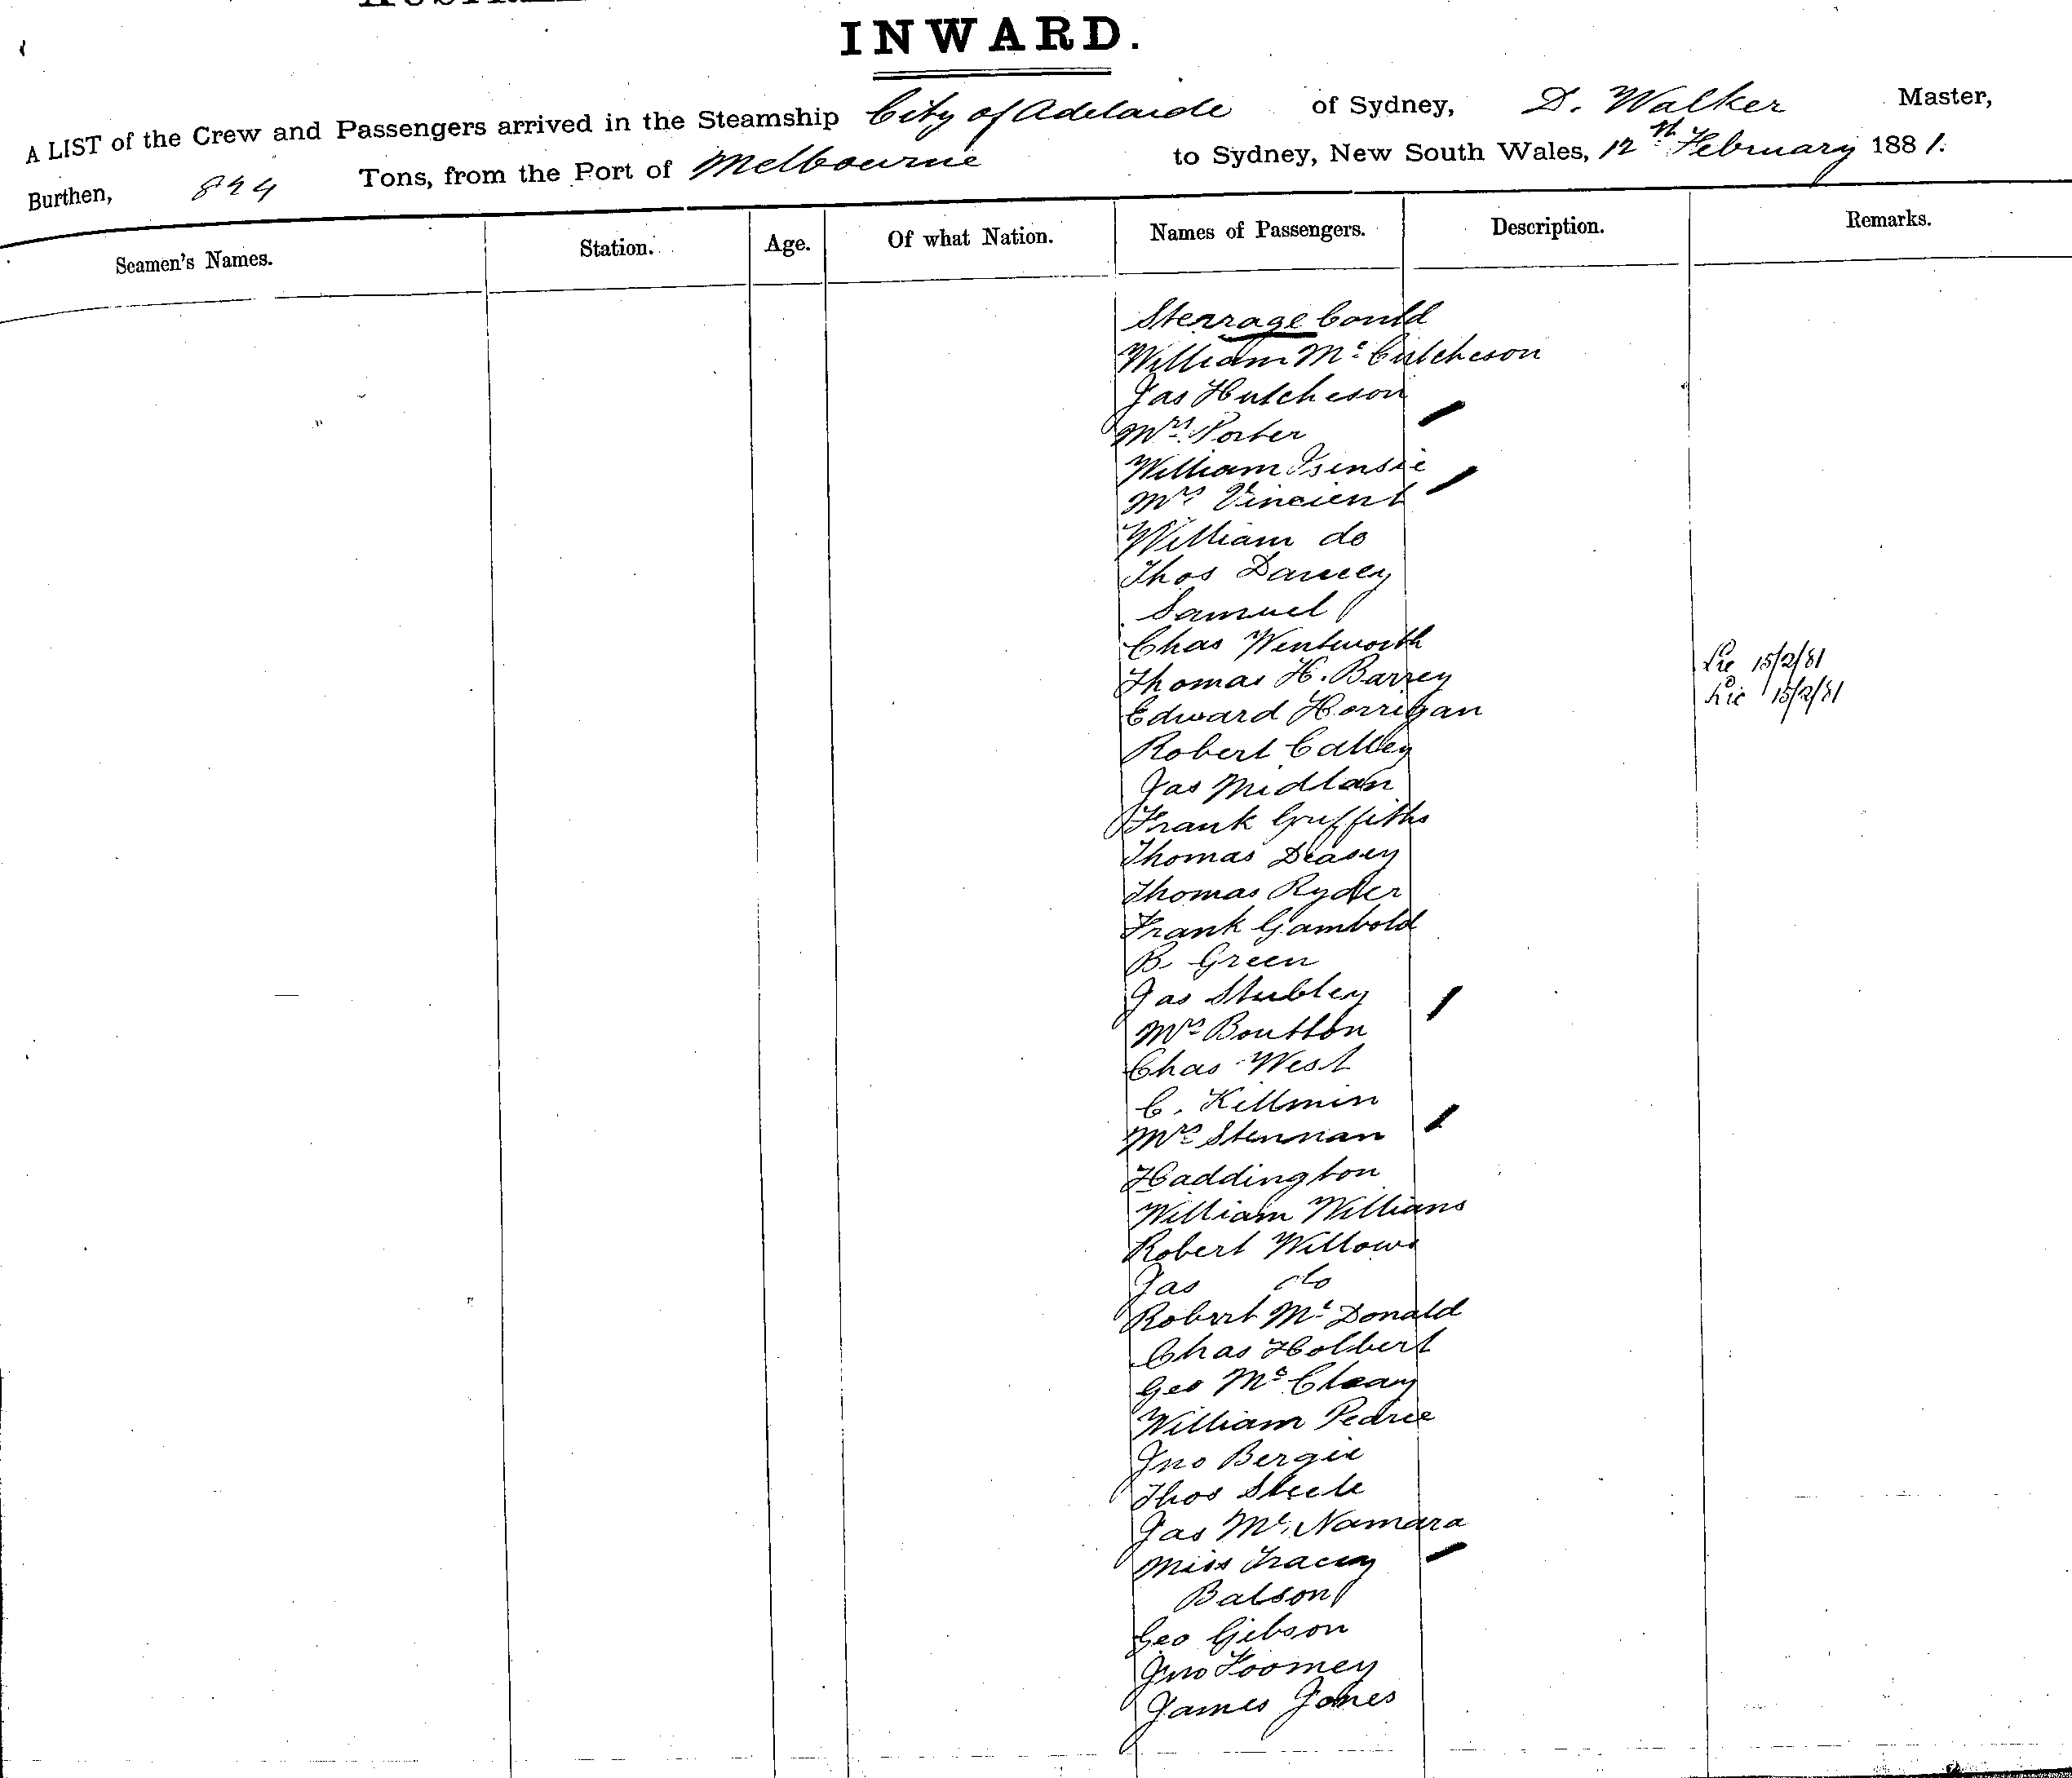 INWARD.
A LIST of the Crew and Passengers arrived in the Steamship City of Adelaide of Sydney, D. Walker Master,
Burthen, 824 Tons, from the Port of Melbourne to Sydney, New South Wales, 12th February 1881.
Seamen's Names. Station. Age. Of what Nation. Names of Passengers. Description. Remarks.
Sterrage Contd
William Mc Cutcheson
Jas Hutcheson
Mrs Porter
William Isensie
Mrs Vincient
William do
Thos Dancey
Samuel
Chas Wentworth
Thomas H. Barrey Lic 15/2/81
Edward Horrigan Lic 15/2/81
Robert Calley
Jas Midlan
Frank Griffiths
Thomas Deasey
Thomas Ryder
Frank Gambold
B. Green
Jas Stubley
Mrs Boutton
Chas West
C. Killmin
Mrs Stennan
Haddington
William Willians
Robert Willows
Jas do
Robert Mc Donald
Chas Holbert
Geo Mc Cleay
William Pearce
Jno Bergie
Thos Steele
Jas Mc Namara
Miss Tracey
Batson
Geo Gibson
Jno Toomey
James Jones